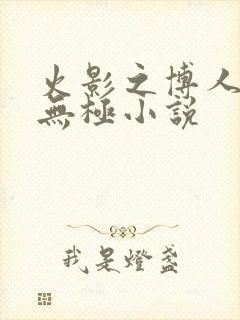 火影之博人
無極小説
我是燈盞